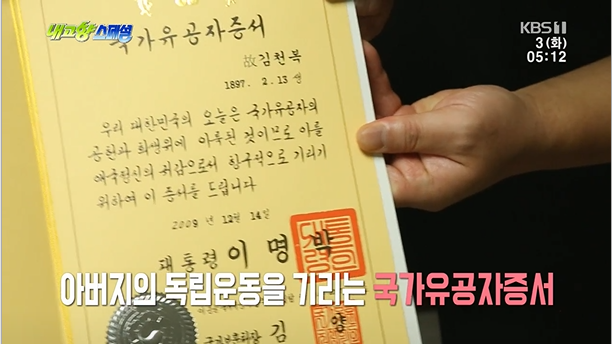 내고향 스페셜
KBS1
3(화)
05:12
국가유공자증서
故김천복
1897. 2. 13 생
우리 대한민국의 오늘은 국가유공자의
공헌과 희생위에 이룩된 것이므로 이를
애국정신의 귀감으로서 항구적으로 기리기
위하여 이 증서를 드립니다
2009 년 12월 14일
대통령 이명박
아버지의 독립운동을 기리는 국가유공자증서
국가보훈처장 김 양